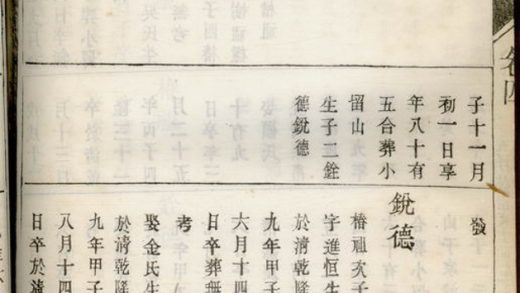 卷四
子十一月
初一日享
年八十有
五合葬小
留山
生子二銓
德銳德
發
銳德
椿祖次子
字進恒生
於清乾隆
九年甲子
六月十四
日卒葬無
考
娶金氏生
於清乾隆
九年甲子
八月十四
日卒於清